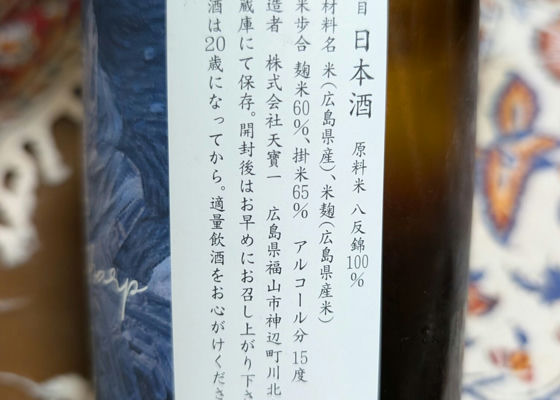 目 日本酒 原料米 八反錦100%
材料名 米(広島県産)、米麹(広島県産米)
米歩合 麹米60%、掛米65% アルコール分 15度
造者 株式会社天寶一 広島県福山市神辺町川北
蔵庫にて保存。開封後はお早めにお召し上がり下さ
酒は20歳になってから。適量飲酒をお心がけくださ